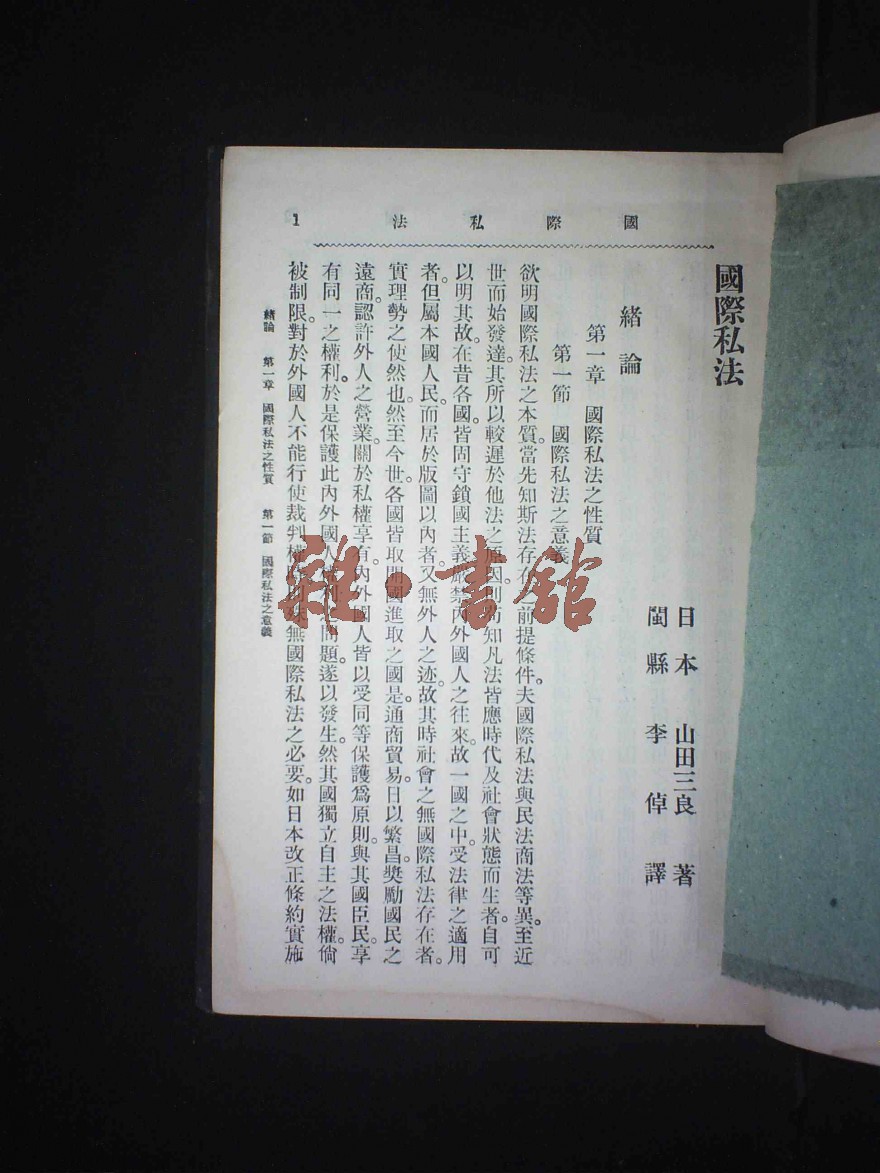 國際私法 1
國際私法
日本 山田三良 著
閩縣 李倬 譯
緒論
第一章 國際私法之性質
第一節 國際私法之意義
欲明國際私法之本質。當先知斯法存在 前提條件。夫國際私法與民法商法等異。至近
世而始發達。其所以較遲於他法之原因。則 知凡法皆應時代及社會狀態而生者。自可
以明其故。在昔各國。皆固守鎖國主義。嚴禁內外國人之往來。故一國之中。受法律之適用
者。但屬本國人民。而居於版圖以內者。又無外人之迹。故其時社會之無國際私法存在者。
實理勢之使然也。然至今世。各國皆取開國進取之國是。通商貿易。日以繁昌。獎勵國民之
遠商。認許外人之營業。關於私權享有。內外國人皆以受同等保護爲原則。與其國臣民。享
有同一之權利。於是保護此內外國人 問題。遂以發生。然其國獨立自主之法權。倘
被制限。對於外國人不能行使裁判權 無國際私法之必要。如日本改正條約實施
緒論 第一章 國際私法之性質 第一節 國際私法之意義
雜·書館